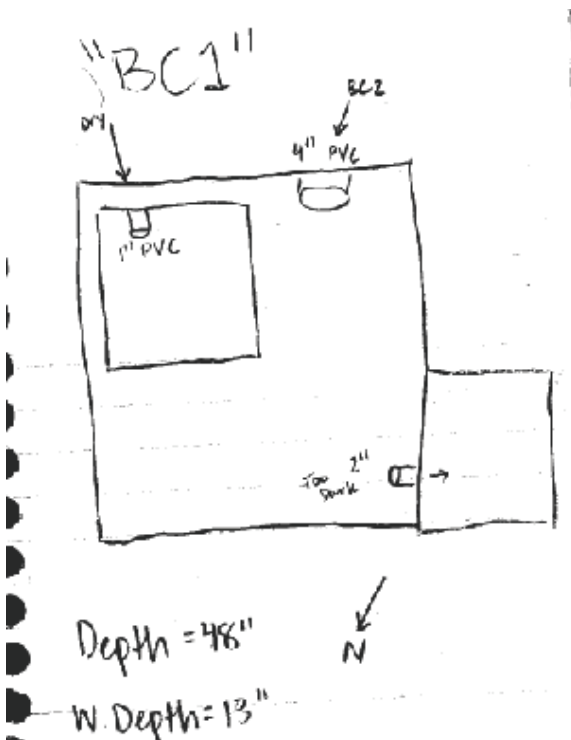 "BC1"
BC2
Dry
4" PVC
1" PVC
2"
Too
Dark
N
Depth = 48"
W. Depth = 13"